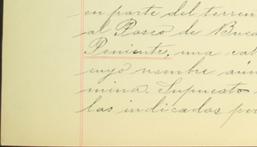 en parte del terren
al Paseo de Buca
Poniente, una cal
cuyo nombre aún
mina. Supuesto
las indicadas por